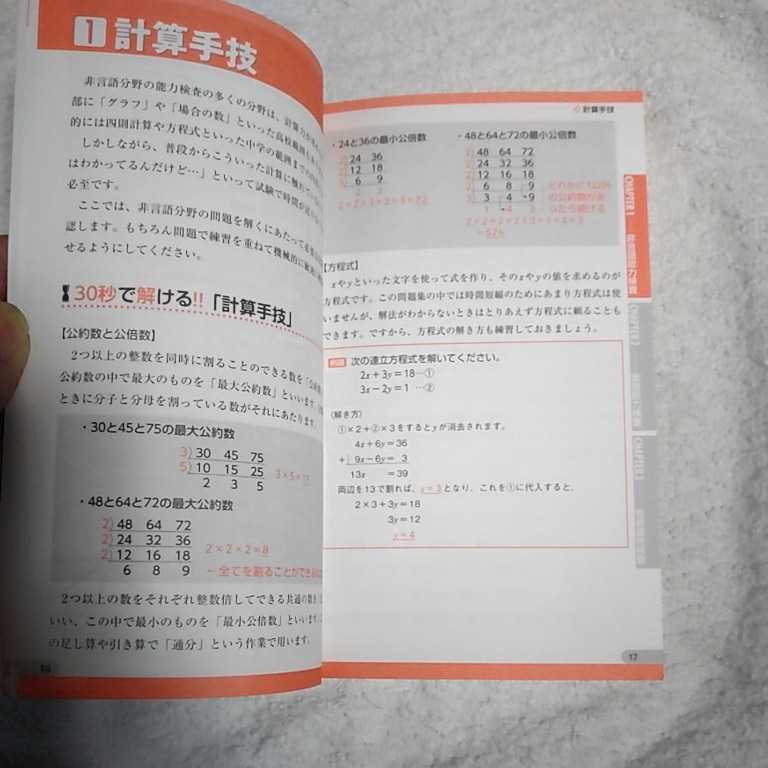 1 計算手技
非言語分野の能力検査の多くの分野は、計算力が
部に「グラフ」や「場合の数」といった高校範囲も
的には四則計算や方程式といった中学の範囲まで
しかしながら、普段からこういった計算に触れてい
はわかってるんだけど…」といって試験で時間が
必至です。
ここでは、非言語分野の問題を解くにあたって必要
認します。もちろん問題で練習を重ねて機械的に
せるようにしてください。
30秒で解ける!!「計算手技」
【公約数と公倍数】
2つ以上の整数を同時に割ることのできる数を「公約
公約数の中で最大のものを「最大公約数」といいます。
ときに分子と分母を割っている数がそれにあたります。
・30と45と75の最大公約数
3) 30 45 75
5) 10 15 25 3×5=15
2 3 5
・48と64と72の最大公約数
2) 48 64 72
2) 24 32 36
2) 12 16 18 2×2×2=8
6 8 9 ←全てを割ることができ
2つ以上の数をそれぞれ整数倍してできる共通の数を
いい、この中で最小のものを「最小公倍数」といいます。
の足し算や引き算で「通分」という作業で用います。
16
計算手技
・24と36の最小公倍数
2) 24 36
2) 12 18
3) 6 9
2 3
2×2×3×2×3=72
・48と64と72の最小公倍数
2) 48 64 72
2) 24 32 36
2) 12 16 18
2) 6 8 9 どれかに1以外
3) 3 4 9 の公約数があ
1 4 3 ったら続ける
2×2×2×2×3×1×4×3
=576
【方程式】
xやyといった文字を使って式を作り、そのxやyの値を求めるのが
方程式です。この問題集の中では時間短縮のためにあまり方程式は使
いませんが、解法がわからないときはとりあえず方程式に頼ることも
できます。ですから、方程式の解き方も練習しておきましょう。
例題 次の連立方程式を解いてください。
2x+3y=18…①
3x−2y=1 …②
(解き方)
①×2+②×3をするとyが消去されます。
4x+6y=36
+) 9x−6y= 3
13x =39
両辺を13で割れば、x=3となり、これを①に代入すると、
2×3+3y=18
3y=12
y=4
CHAPTER 1
非言語能力検査
CHAPTER 2
CHAPTER 3
17